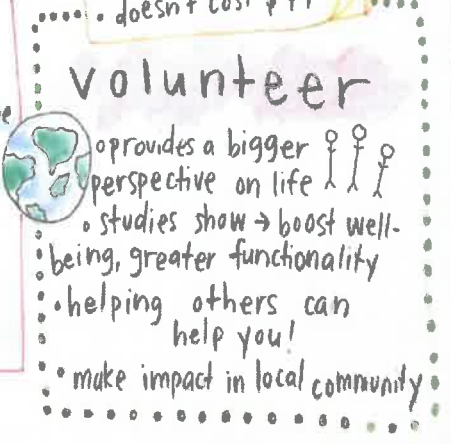 doesn't cost
volunteer
o provides a bigger
perspective on life
• studies show → boost well-
being, greater functionality
• helping others can
help you!
• make impact in local community